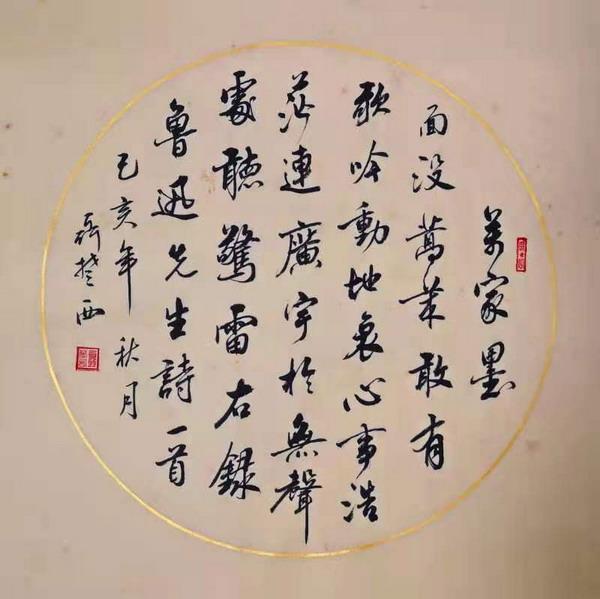 萬家墨
面没蒿莱敢有
歌吟動地哀心事浩
茫連廣宇於無聲
處聽驚雷右録
魯迅先生詩一首
己亥年秋月
西